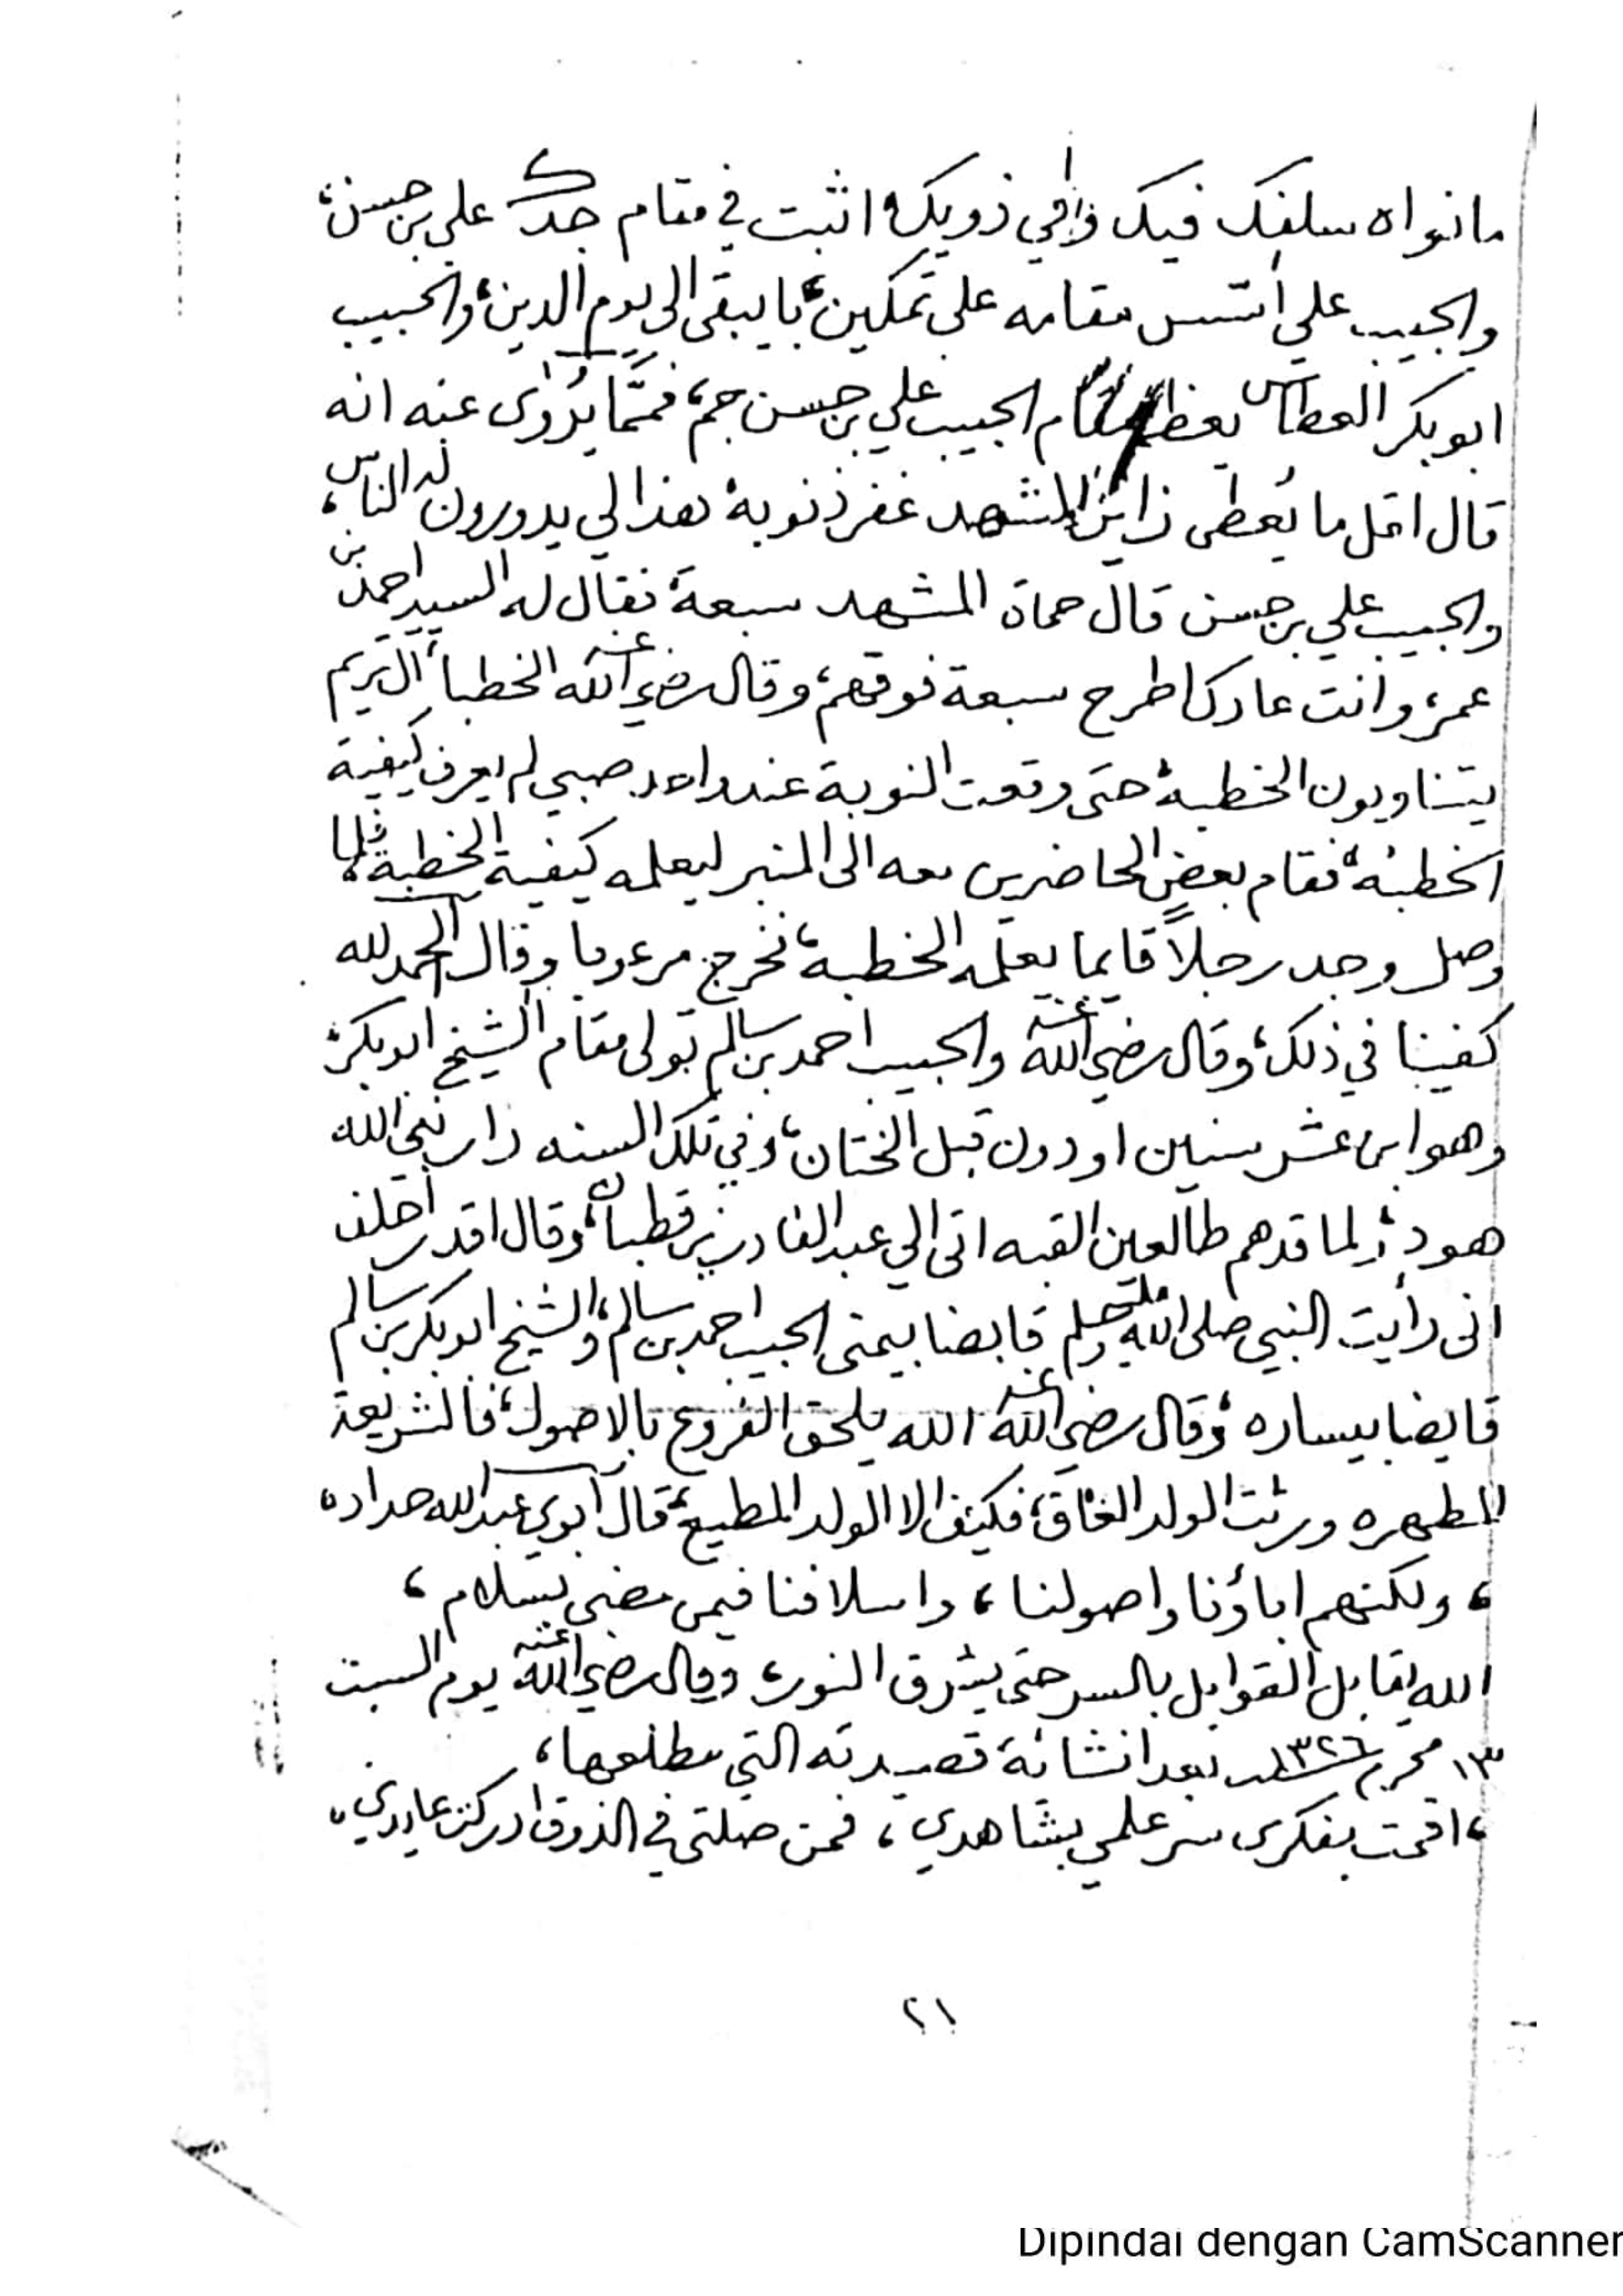 مانواه سلفك فيك وافي ذويك، اثبت في مقام جدك علي بن حسن،
والحبيب علي أسس مقامه على تمكين، بايبقى الى يوم الدين، والحبيب
ابوبكر العطاس يعظم مقام الحبيب علي بن حسن جم، فممّا يُرْوى عنه انه
قال اقل ما يُعطى زاير المشهد غفر ذنوبه هذا لي يدورون له الناس،
والحبيب علي بن حسن قال حماة المشهد سبعة فقال له السيد احمد بن
عمر، وانت عادك اطرح سبعة فوقهم، وقال رضي الله عنه الخطباء آل تريم
يتناوبون الخطبة حتى وقعت النوبة عند واحد صبي لم يعرف كيفية
الخطبة، فقام بعض الحاضرين معه الى المنبر ليعلمه كيفية الخطبة، فلما
وصل وجد رجلاً قايما يعلمه الخطبة، فخرج مرعوبا وقال الحمد لله
كفينا في ذلك، وقال رضي الله عنه والحبيب احمد بن سالم تولى مقام الشيخ ابوبكر،
وهو ابن عشر سنين او دون قبل الختان، وفي تلك السنه زار نبي الله
هود، ولما قدهم طالعين القبه اتى الي عبدالقادر بن قطبان، وقال اقدر احلف
انى رأيت النبي صلى الله عليه وسلم قابضا بيمنى الحبيب احمد بن سالم، والشيخ ابوبكر بن سالم
قابضا بيساره، وقال رضي الله عنه الله يلحق الفروع بالاصول، فالشريعة
المطهره ورثت الولد العاق، فكيف الا الولد المطيع، قال أبوي عبدالله حداد،
، ولكنهم اباؤنا واصولنا ، واسلافنا فيمن مضى بسلام ،
الله يقابل القوابل بالسر حتى يشرق النور، وقال رضي الله عنه يوم السبت
١٣ محرم ١٣٢٦ بعد انشائه قصيدته التي مطلعها،
، اقمت بفكرى سر علمي بشاهدي ، فمن صلتي في الذوق ادركت عايدي،
٢١
Dipindai dengan CamScanner